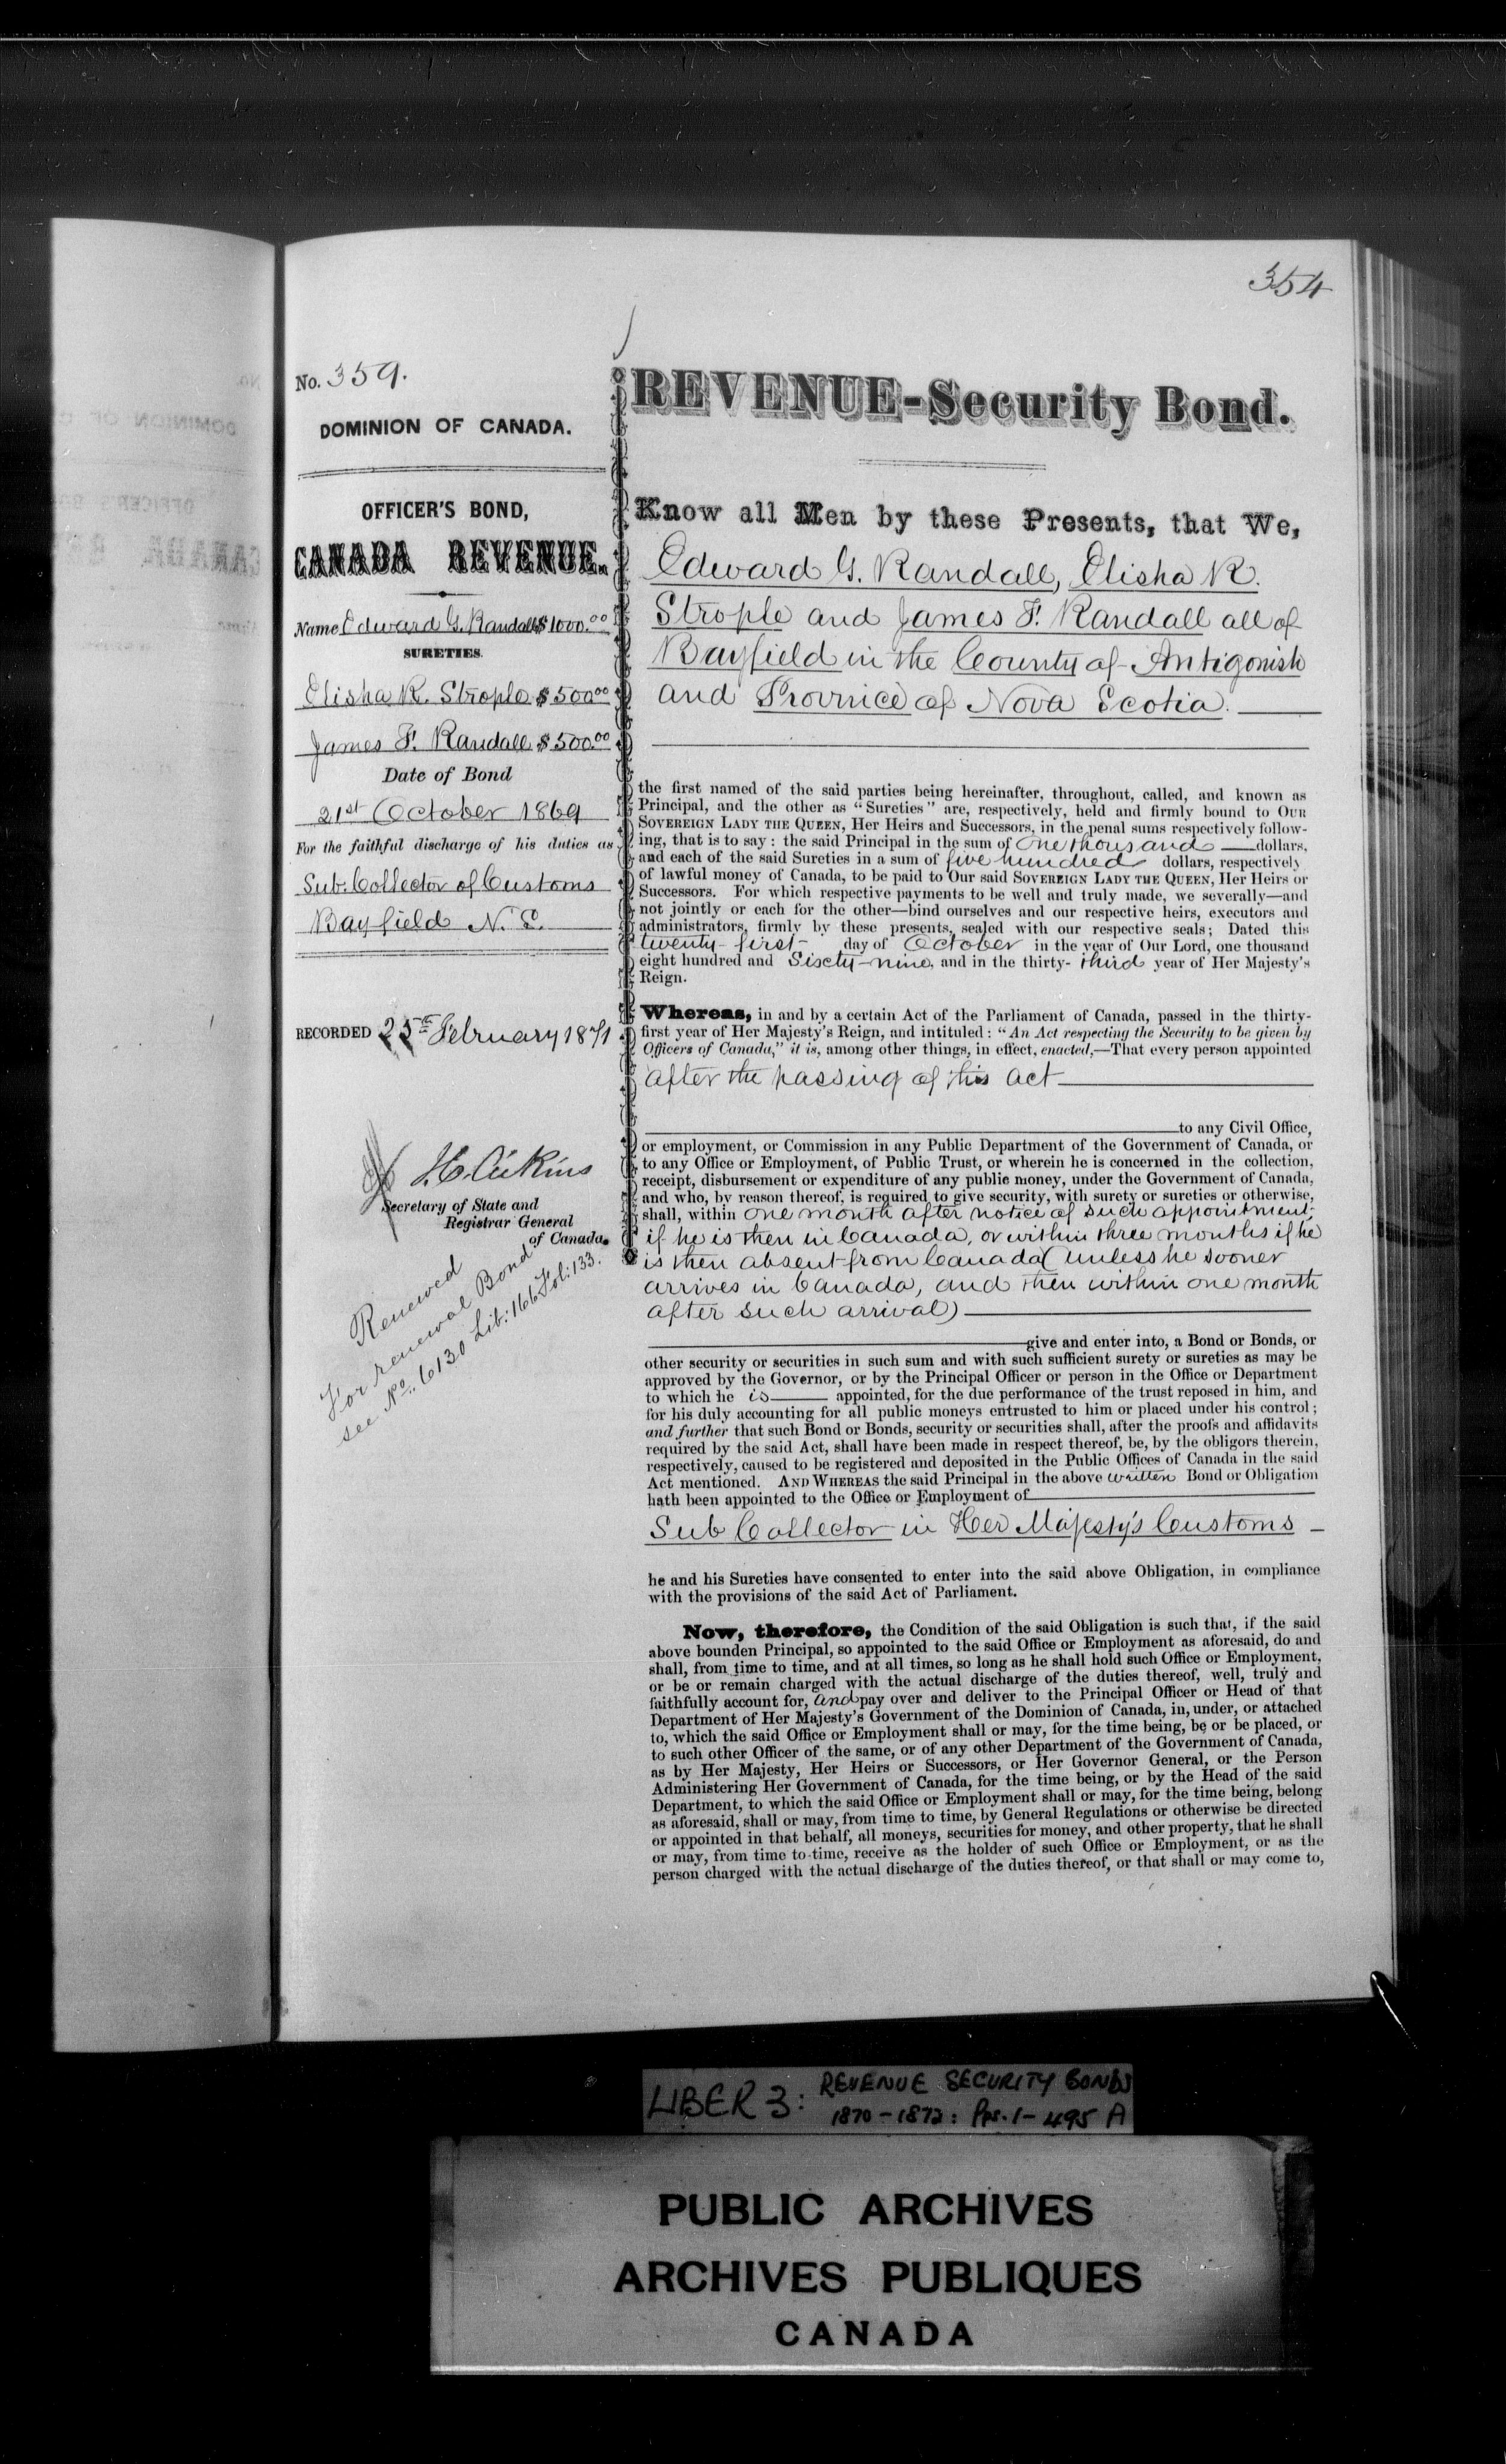 354
No. 359.
DOMINION OF CANADA.
OFFICER'S BOND,
CANADA REVENUE.
Name Edward G. Randall $1000.00
SURETIES.
Elisha R. Strople $500.00
James F. Randall $500.00
Date of Bond
21st October 1869
For the faithful discharge of his duties as
Sub. Collector of Customs
Bayfield N. S.
RECORDED 25th February 1871
J. C. Aikins
Secretary of State and
Registrar General
of Canada.
Renewed
For renewal Bond
see No. 6130 Lib: 166 Fol: 133.
REVENUE-Security Bond.
Know all Men by these Presents, that We,
Edward G. Randall, Elisha R.
Strople and James F. Randall all of
Bayfield in the County of Antigonish
and Province of Nova Scotia.
the first named of the said parties being hereinafter, throughout, called, and known as
Principal, and the other as "Sureties" are, respectively, held and firmly bound to OUR
SOVEREIGN LADY THE QUEEN, Her Heirs and Successors, in the penal sums respectively follow-
ing, that is to say: the said Principal in the sum of One thousand dollars,
and each of the said Sureties in a sum of five hundred dollars, respectively
of lawful money of Canada, to be paid to Our said SOVEREIGN LADY THE QUEEN, Her Heirs or
Successors. For which respective payments to be well and truly made, we severally—and
not jointly or each for the other—bind ourselves and our respective heirs, executors and
administrators, firmly by these presents, sealed with our respective seals; Dated this
twenty-first day of October in the year of Our Lord, one thousand
eight hundred and Sixty-nine, and in the thirty-third year of Her Majesty's
Reign.
Whereas, in and by a certain Act of the Parliament of Canada, passed in the thirty-
first year of Her Majesty's Reign, and intituled: "An Act respecting the Security to be given by
Officers of Canada," it is, among other things, in effect, enacted,—That every person appointed
after the passing of this act
to any Civil Office,
or employment, or Commission in any Public Department of the Government of Canada, or
to any Office or Employment, of Public Trust, or wherein he is concerned in the collection,
receipt, disbursement or expenditure of any public money, under the Government of Canada,
and who, by reason thereof, is required to give security, with surety or sureties or otherwise,
shall, within one month after notice of such appointment,
if he is then in Canada, or within three months if he
is then absent from Canada (unless he sooner
arrives in Canada, and then within one month
after such arrival)
give and enter into, a Bond or Bonds, or
other security or securities in such sum and with such sufficient surety or sureties as may be
approved by the Governor, or by the Principal Officer or person in the Office or Department
to which he is appointed, for the due performance of the trust reposed in him, and
for his duly accounting for all public moneys entrusted to him or placed under his control;
and further that such Bond or Bonds, security or securities shall, after the proofs and affidavits
required by the said Act, shall have been made in respect thereof, be, by the obligors therein,
respectively, caused to be registered and deposited in the Public Offices of Canada in the said
Act mentioned. AND WHEREAS the said Principal in the above written Bond or Obligation
hath been appointed to the Office or Employment of
Sub Collector in Her Majesty's Customs
he and his Sureties have consented to enter into the said above Obligation, in compliance
with the provisions of the said Act of Parliament.
Now, therefore, the Condition of the said Obligation is such that, if the said
above bounden Principal, so appointed to the said Office or Employment as aforesaid, do and
shall, from time to time, and at all times, so long as he shall hold such Office or Employment,
or be or remain charged with the actual discharge of the duties thereof, well, truly and
faithfully account for, and pay over and deliver to the Principal Officer or Head of that
Department of Her Majesty's Government of the Dominion of Canada, in, under, or attached
to, which the said Office or Employment shall or may, for the time being, be or be placed, or
to such other Officer of the same, or of any other Department of the Government of Canada,
as by Her Majesty, Her Heirs or Successors, or Her Governor General, or the Person
Administering Her Government of Canada, for the time being, or by the Head of the said
Department, to which the said Office or Employment shall or may, for the time being, belong
as aforesaid, shall or may, from time to time, by General Regulations or otherwise be directed
or appointed in that behalf, all moneys, securities for money, and other property, that he shall
or may, from time to time, receive as the holder of such Office or Employment, or as the
person charged with the actual discharge of the duties thereof, or that shall or may come to,
LIBER 3: REVENUE SECURITY BONDS
1870-1872: Pps. 1-495 A
PUBLIC ARCHIVES
ARCHIVES PUBLIQUES
CANADA